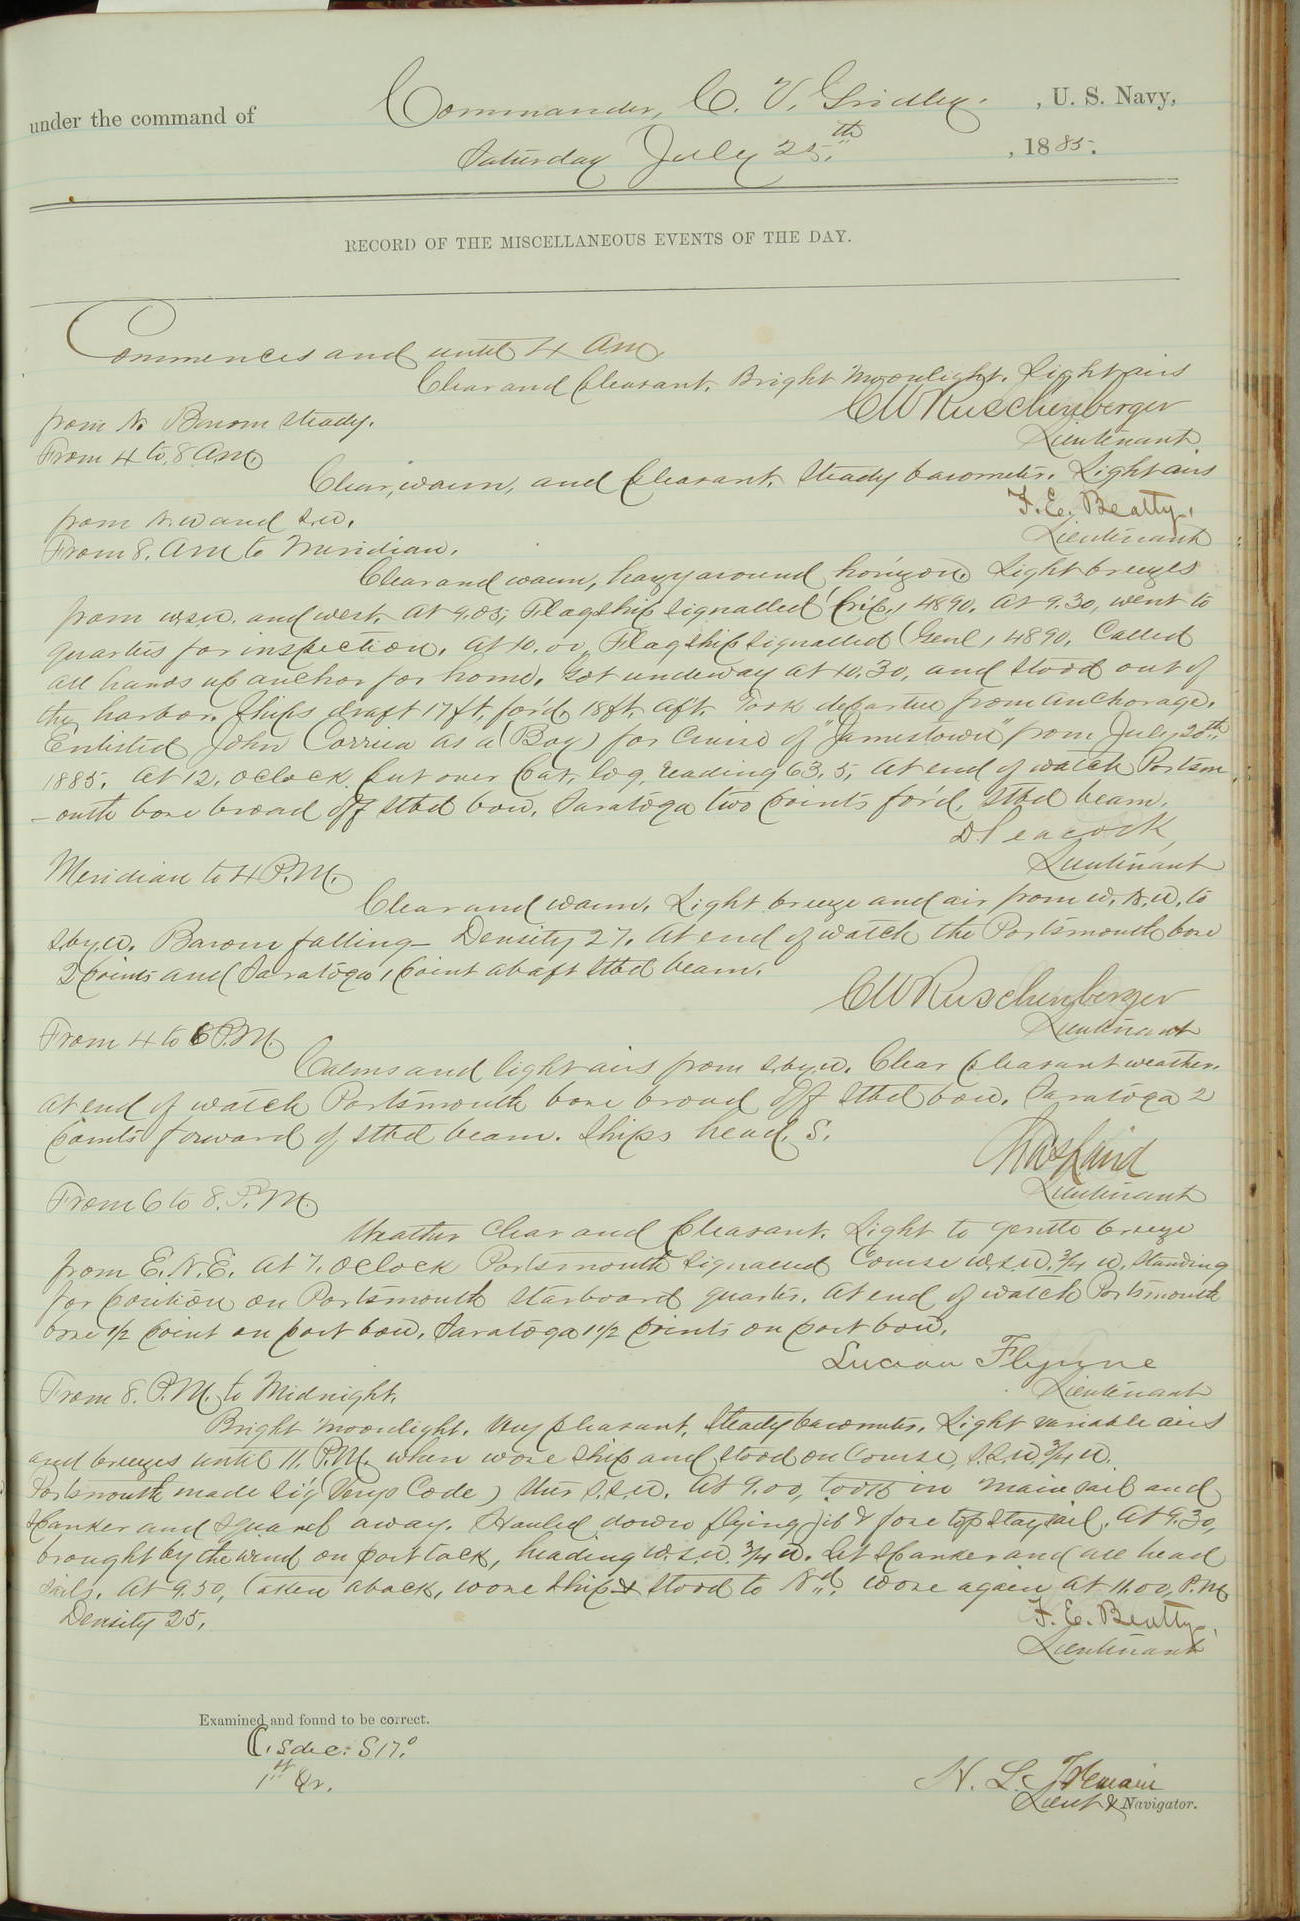 under the command of Commander, C. V. Gridley. , U. S. Navy,
Saturday July 25th , 1885.
RECORD OF THE MISCELLANEOUS EVENTS OF THE DAY.
Commences and until 4 Am,
Clear and pleasant. Bright moonlight. Light airs
from N. Barom steady.
CW Ruschenberger
Lieutenant
From 4 to 8 A.M.
Clear, warm, and pleasant. Steady barometer. Light airs
from N.W and S.W.
F. E. Beatty.
Lieutenant
From 8. Am to Meridian.
Clear and warm, hazy around horizon. Light breezes
from W.S.W. and west. At 9.05, Flagship signalled 4890. At 9.30, went to
quarters for inspection. At 10.00, Flagship signalled (Genl, 4890. Called
all hands up anchor for home. Got underway at 10.30, and stood out of
the harbor. Ships draft 17 ft. for'd, 18 ft. aft. Took departure from anchorage.
Enlisted John as a (Boy) for Cruise of "Jamestown" from July 20th
1885. At 12. oclock put over Pat. log, reading 63.5, At end of watch Portsm
-outh bore broad off stbd bow. Saratoga two points for'd, stbd beam.
D Peacock,
Lieutenant
Meridian to 4 P.M.
Clear and warm. Light breeze and air from W.N.W. to
S.by.W. Barom falling - Density 27. At end of watch the Portsmouth bore
2 points and Saratoga 1 point abaft stbd beam.
CW Ruschenberger
Lieutenant
From 4 to 6 P.M.
Calms and light airs from S.by.W. Clear pleasant weather.
At end of watch Portsmouth bore broad off stbd bow. Saratoga 2
points forward of stbd beam. Ships head, S.
Chas Laird
Lieutenant
From 6 to 8. P.M.
Weather clear and pleasant. Light to gentle breeze
from E.N.E. At 7. oclock Portsmouth signalled Course W.S.W. 3/4 W. Standing
for position on Portsmouth starboard quarter. At end of watch Portsmouth
bore 1/2 point on port bow. Saratoga 1 1/2 points on port bow.
Lucian Flynne
Lieutenant
From 8. P.M. to Midnight.
Bright moonlight. Very pleasant, steady barometer. Light variable airs
and breezes until 11. P.M. when wore ship and stood on Course, S.S.W. 3/4 W.
Portsmouth made sig (Verys Code) Steer S.S.W. At 9.00, took in main sail and
spanker and squared away. Hauled down flying jib & fore topstaysail. At 9.30,
brought by the wind on port tack, heading W.S.W 3/4 W. Set spanker and all head
sails. At 9.50, taken aback, wore ship & stood to N'd. Wore again at 11.00, P.M
Density 25.
F. E. Beatty.
Lieutenant
Examined and found to be correct.
dec: S17°
1st Qr.
H. L. Tremain
Lieut & Navigator.